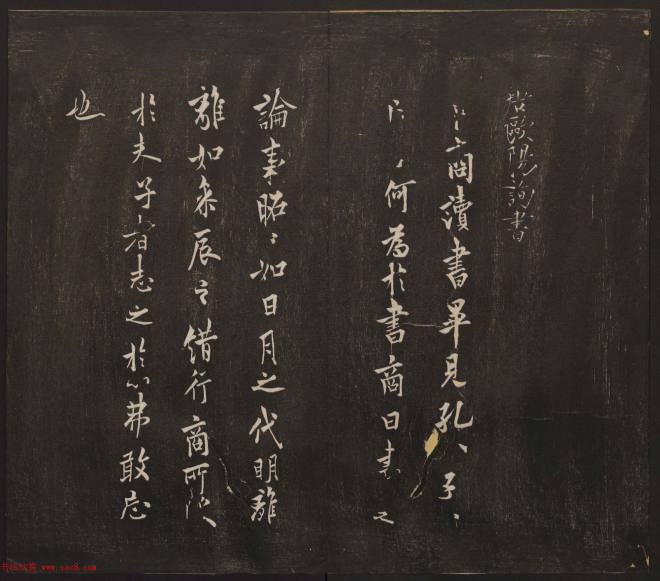 唐歐陽詢書
商讀書畢見孔〻子〻
何為於書商曰書之
論事昭〻如日月之代明離
離如參辰之錯行商所受
於夫子者志之於心弗敢忘
也
书法欣赏